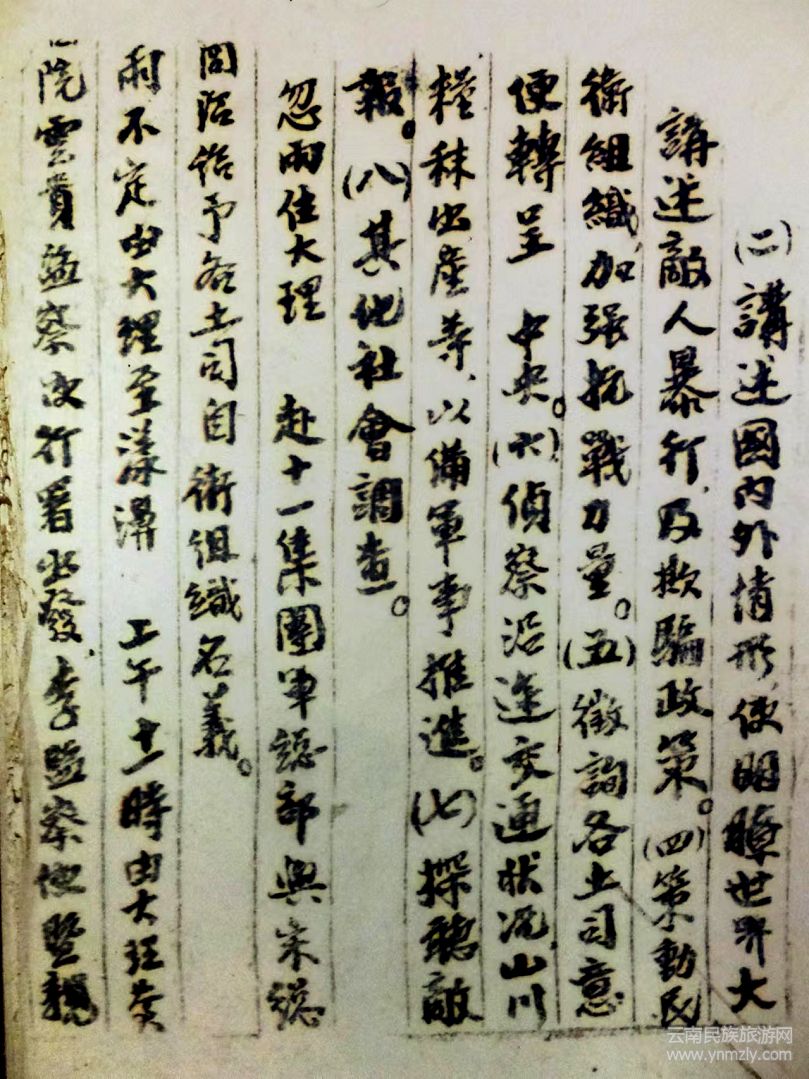 (二)講述國内外情形使明瞭世界大
講述敵人暴行及欺騙政策。(四)策動民
衛組織加强抗戰力量。(五)徵詢各土司意
便轉呈 中央。(六)偵察沿途交通狀况、山川
糧秣出産等、以備軍事推進。(七)探聽敵
報。(八)其他社會調查。
忽雨住大理 赴十一集團軍總部與宋總
同 給予各土司自衛組織名義。
雨不定由大理至漾濞 上午十一時由大理
院雲貴監察 行署出發、李監察使暨
云南民族旅游网
www.ynmzly.com